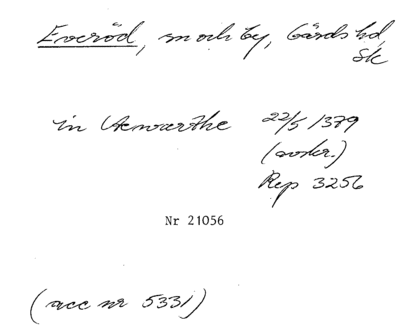 Everöd, sn och by, Gärds hd,
Sk
in Akwarthe 22/5 1379
(avskr.)
Rep 3256
Nr 21056
(acc nr 5331)